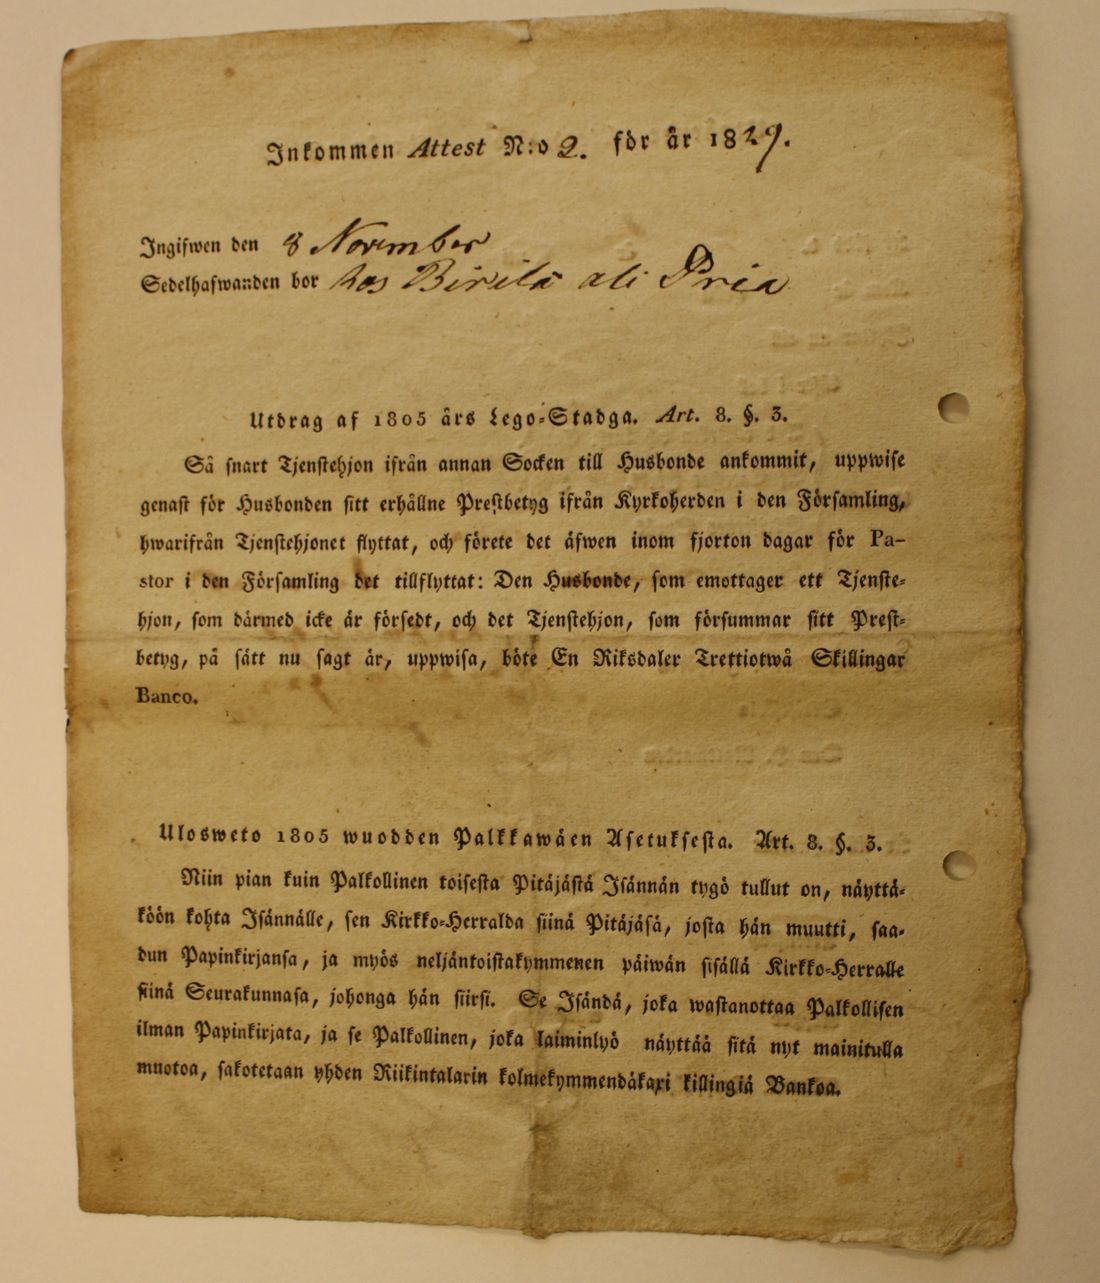 Inkommen Attest N:o 2. för år 1829.
Ingifwen den 8 November
Sedelhafwanden bor hos Birila
Utdrag af 1805 års Lego-Stadga. Art. 8. §. 3.
Så snart Tjenstehjon ifrån annan Socken till Husbonde ankommit, uppwise
genast för Husbonden sitt erhållne Prestbetyg ifrån Kyrkoherden i den Församling,
hwarifrån Tjenstehjonet flyttat, och förete det äfwen inom fjorton dagar för Pa-
stor i den Församling det tillflyttat: Den Husbonde, som emottager ett Tjenste-
hjon, som därmed icke är försedt, och det Tjenstehjon, som försummar sitt Prest-
betyg, på sätt nu sagt är, uppwisa, böte En Riksdaler Trettiotwå Skillingar
Banco.
Ulosweto 1805 wuodden Palkkawäen Asetuksesta. Art. 8. §. 3.
Niin pian kuin Palkollinen toisesta Pitäjästä Isännän tygö tullut on, näyttä-
köön kohta Isännälle, sen Kirkko-Herralda siinä Pitäjäsä, josta hän muutti, saa-
dun Papinkirjansa, ja myös neljäntoistakymmenen päiwän sisällä Kirkko-Herralle
siinä Seurakunnasa, johonga hän siirsi. Se Isändä, joka wastanottaa Palkollisen
ilman Papinkirjata, ja se Palkollinen, joka laiminlyö näyttää sitä nyt mainitulla
muotoa, sakotetaan yhden Riikintalarin kolmekymmendäkaxi killingiä Bankoa.